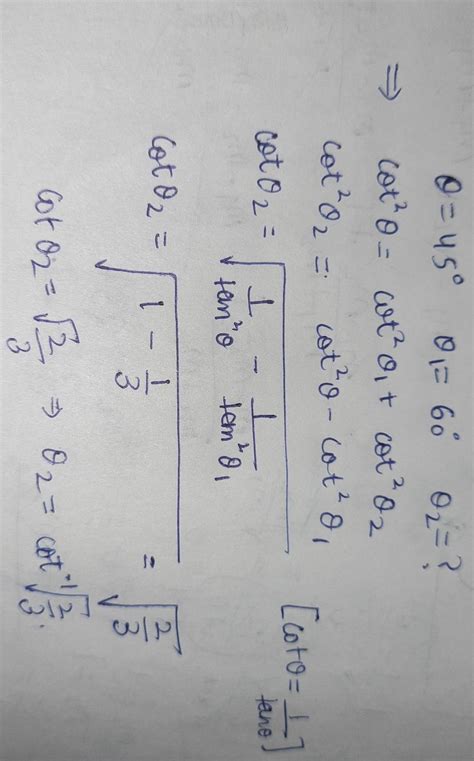 θ = 45° θ₁ = 60° θ₂ = ?
⇒ cot²θ = cot²θ₁ + cot²θ₂
cot²θ₂ = cot²θ - cot²θ₁
cotθ₂ = √(1/tan²θ - 1/tan²θ₁) [cotθ = 1/tanθ]
cotθ₂ = √(1 - 1/3) = √(2/3)
cotθ₂ = √2/3 ⇒ θ₂ = cot⁻¹√(2/3).